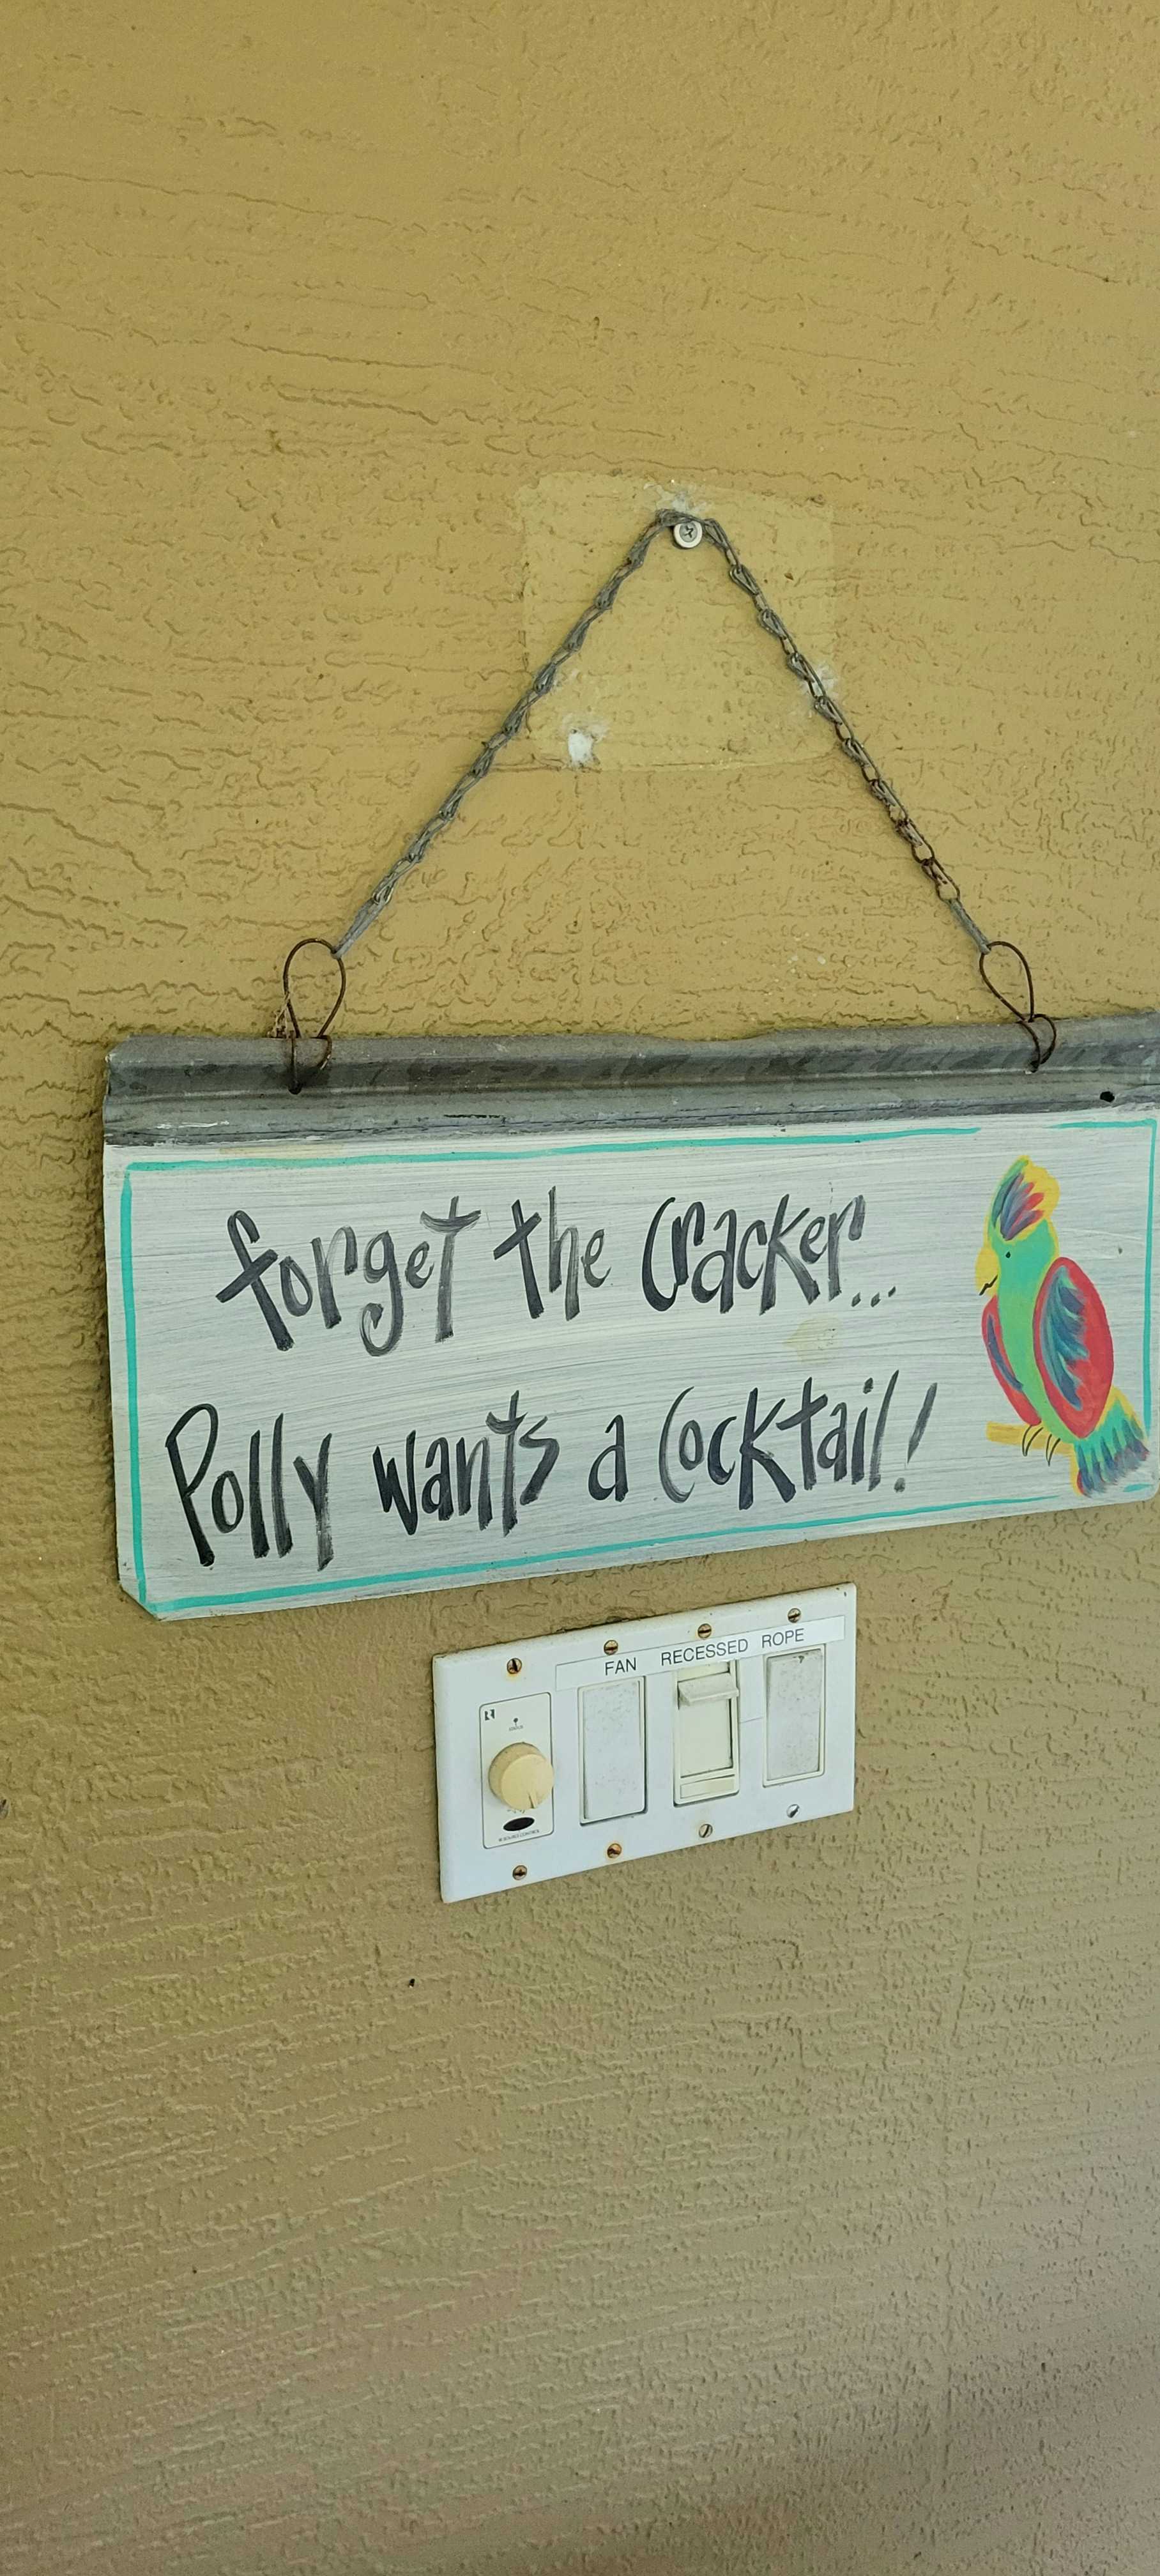 forget the Cracker...
Polly wants a Cocktail!
FAN RECESSED ROPE